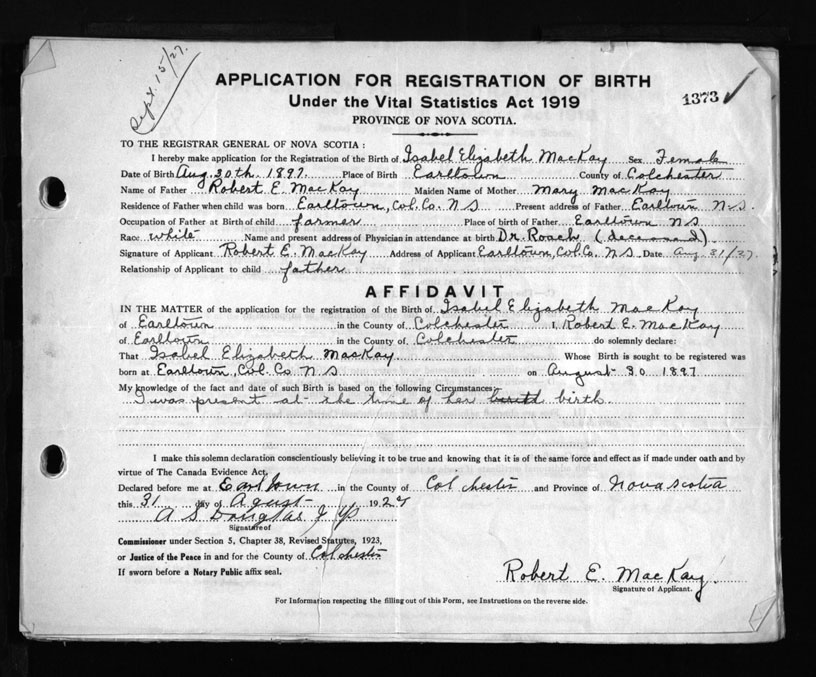 Sept. 15/27.
APPLICATION FOR REGISTRATION OF BIRTH
Under the Vital Statistics Act 1919
1373
PROVINCE OF NOVA SCOTIA.
TO THE REGISTRAR GENERAL OF NOVA SCOTIA :
I hereby make application for the Registration of the Birth of Isabel Elizabeth MacKay Sex Female
Date of Birth Aug. 30th. 1897. Place of Birth Earltown County of Colchester
Name of Father Robert E. MacKay Maiden Name of Mother Mary MacKay
Residence of Father when child was born Earltown, Col. Co. N S Present address of Father Earltown N.S.
Occupation of Father at Birth of child farmer Place of birth of Father Earltown N S
Race white Name and present address of Physician in attendance at birth Dr. Roach (deceased).
Signature of Applicant Robert E. MacKay Address of Applicant Earltown, Col. Co. N S. Date Aug. 31/27.
Relationship of Applicant to child father
AFFIDAVIT
IN THE MATTER of the application for the registration of the Birth of Isabel Elizabeth MacKay
of Earltown in the County of Colchester I, Robert E. MacKay
of Earltown in the County of Colchester do solemnly declare:
That Isabel Elizabeth MacKay Whose Birth is sought to be registered was
born at Earltown, Col. Co N S on August 30 1897
My knowledge of the fact and date of such Birth is based on the following Circumstances:
I was present at the time of her birth.
I make this solemn declaration conscientiously believing it to be true and knowing that it is of the same force and effect as if made under oath and by
virtue of The Canada Evidence Act.
Declared before me at Earltown in the County of Colchester and Province of Nova Scotia
this 31 day of Agust 1927
A S Douglas J P
Signature of
Commissioner under Section 5, Chapter 38, Revised Statutes, 1923,
or Justice of the Peace in and for the County of Colchester
If sworn before a Notary Public affix seal.
Robert E. MacKay.
Signature of Applicant.
For Information respecting the filling out of this Form, see Instructions on the reverse side.